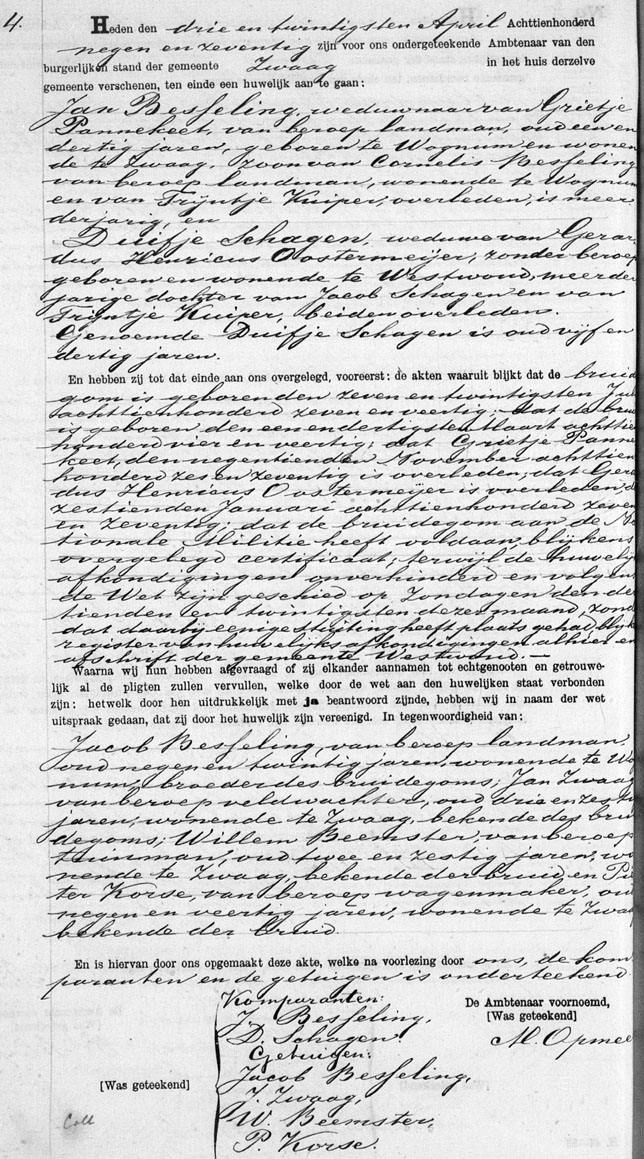 4.
Heden den drie en twintigsten April Achttienhonderd
negen en zeventig zijn voor ons ondergeteekende Ambtenaar van den
burgerlijken stand der gemeente Zwaag in het huis derzelve
gemeente verschenen, ten einde een huwelijk aan te gaan:
Jan Besseling, weduwnaar van Grietje
Pannekeet, van beroep landman, oud een en
dertig jaren, geboren te Wognum en wonen
de te Zwaag, zoon van Cornelis Besseling
van beroep landman, wonende te Wognum
en van Trijntje Kuiper, overleden, is meer
derjarig, en
Duifje Schagen, weduwe van Gerar
dus Henricus Oostermeijer, zonder beroep
geboren en wonende te Westwoud, meerder
jarige dochter van Jacob Schagen en van
Trijntje Kuiper, beiden overleden.
Genoemde Duifje Schagen is oud vijf en
dertig jaren.
En hebben zij tot dat einde aan ons overgelegd, vooreerst: de akten waaruit blijkt dat de bruid
gom is geboren den zeven en twintigsten
achttienhonderd zeven en veertig; dat de bru
is geboren den een en dertigsten Maart achttien
honderd vier en veertig; dat Grietje Panne
keet, den negentienden November achttien
honderd zes en zeventig is overleden; dat Gera
dus Henricus Oostermeijer is overleden d
zestienden Januari achttienhonderd zeven
en zeventig; dat de bruidegom aan de Na
tionale Militie heeft voldaan, blijkens
overgelegd certificaat; terwijl de huwelij
afkondigingen onverhinderd en volgens
de Wet zijn geschied op Zondagen den der
tienden en twintigsten dezer maand, zond
dat daarbij eenige stuiting heeft plaats gehad, blijk
register van huwelijks afkondigingen alhier en
afschrift der gemeente Westwoud.—
Waarna wij hun hebben afgevraagd of zij elkander aannamen tot echtgenooten en getrouwe-
lijk al de pligten zullen vervullen, welke door de wet aan den huwelijken staat verbonden
zijn: hetwelk door hen uitdrukkelijk met ja beantwoord zijnde, hebben wij in naam der wet
uitspraak gedaan, dat zij door het huwelijk zijn vereenigd. In tegenwoordigheid van:
Jacob Besseling, van beroep landman,
oud negen en twintig jaren, wonende te Wo
num, broeder des bruidegoms; Jan Zwaag
van beroep veldwachter, oud drie en zestig
jaren, wonende te Zwaag, bekende des brui
degoms; Willem Beemster, van beroep
tuinman, oud twee en zestig jaren, wo
nende te Zwaag, bekende der bruid en Pie
ter Korse, van beroep wagenmaker, oud
negen en veertig jaren, wonende te Zwaag
bekende der bruid.
En is hiervan door ons opgemaakt deze akte, welke na voorlezing door ons, de kom
paranten en de getuigen is onderteekend
Komparanten: De Ambtenaar voornoemd,
J. Besseling, [Was geteekend]
D. Schagen. M. Opmee
Getuigen:
[Was geteekend] Jacob Besseling,
J. Zwaag,
W. Beemster,
Coll P. Korse.